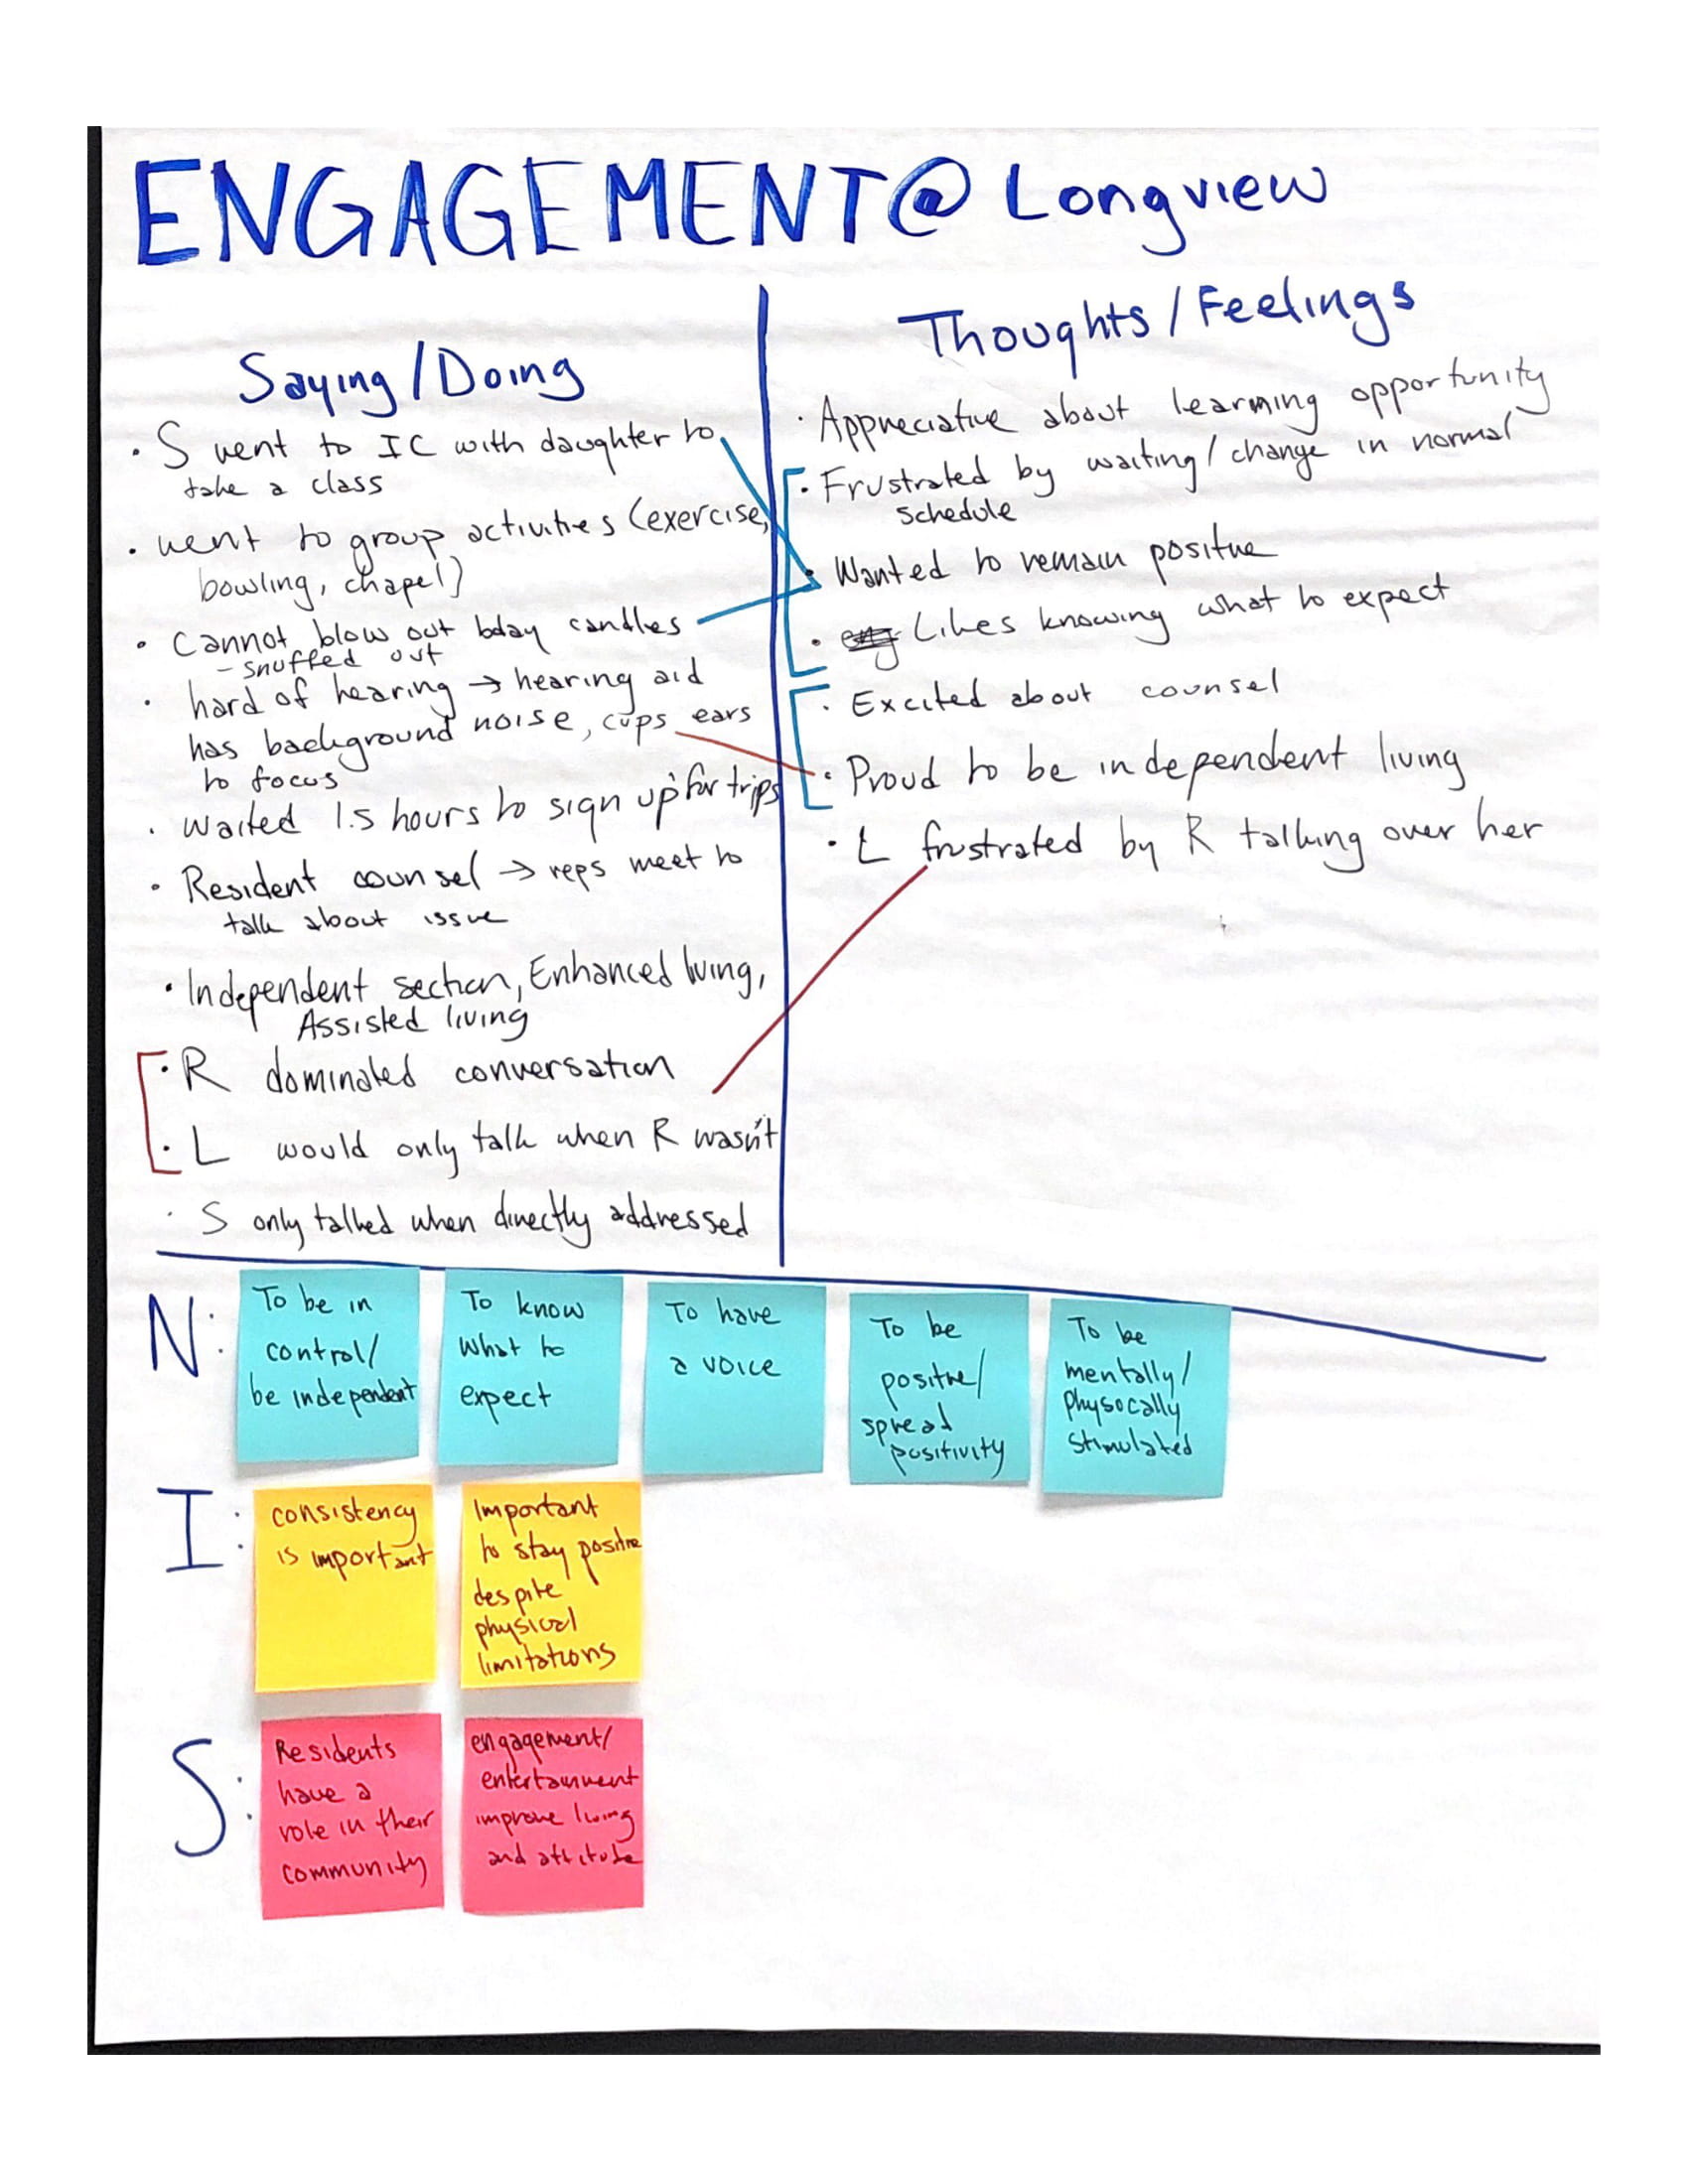 ENGAGEMENT @ Longview
Saying/Doing
• S went to IC with daughter to
take a class
• went to group activities (exercise,
bowling, chapel)
• Cannot blow out bday candles
- snuffed out
• hard of hearing → hearing aid
has background noise, cups ears
to focus
• Waited 1.5 hours to sign up for trips
• Resident counsel → reps meet to
talk about issue
• Independent section, Enhanced living,
Assisted living
• R dominated conversation
• L would only talk when R wasn't
• S only talked when directly addressed
Thoughts/Feelings
• Appreciative about learning opportunity
• Frustrated by waiting/change in normal
schedule
• Wanted to remain positive
• Likes knowing what to expect
• Excited about counsel
• Proud to be independent living
• L frustrated by R talking over her
N:
To be in
control/
be independent
To know
what to
expect
To have
a voice
To be
positive/
spread
positivity
To be
mentally/
physocally
stimulated
I:
consistency
is important
Important
to stay positive
despite
physical
limitations
S:
Residents
have a
role in their
community
engagement/
entertainment
improve living
and attitude